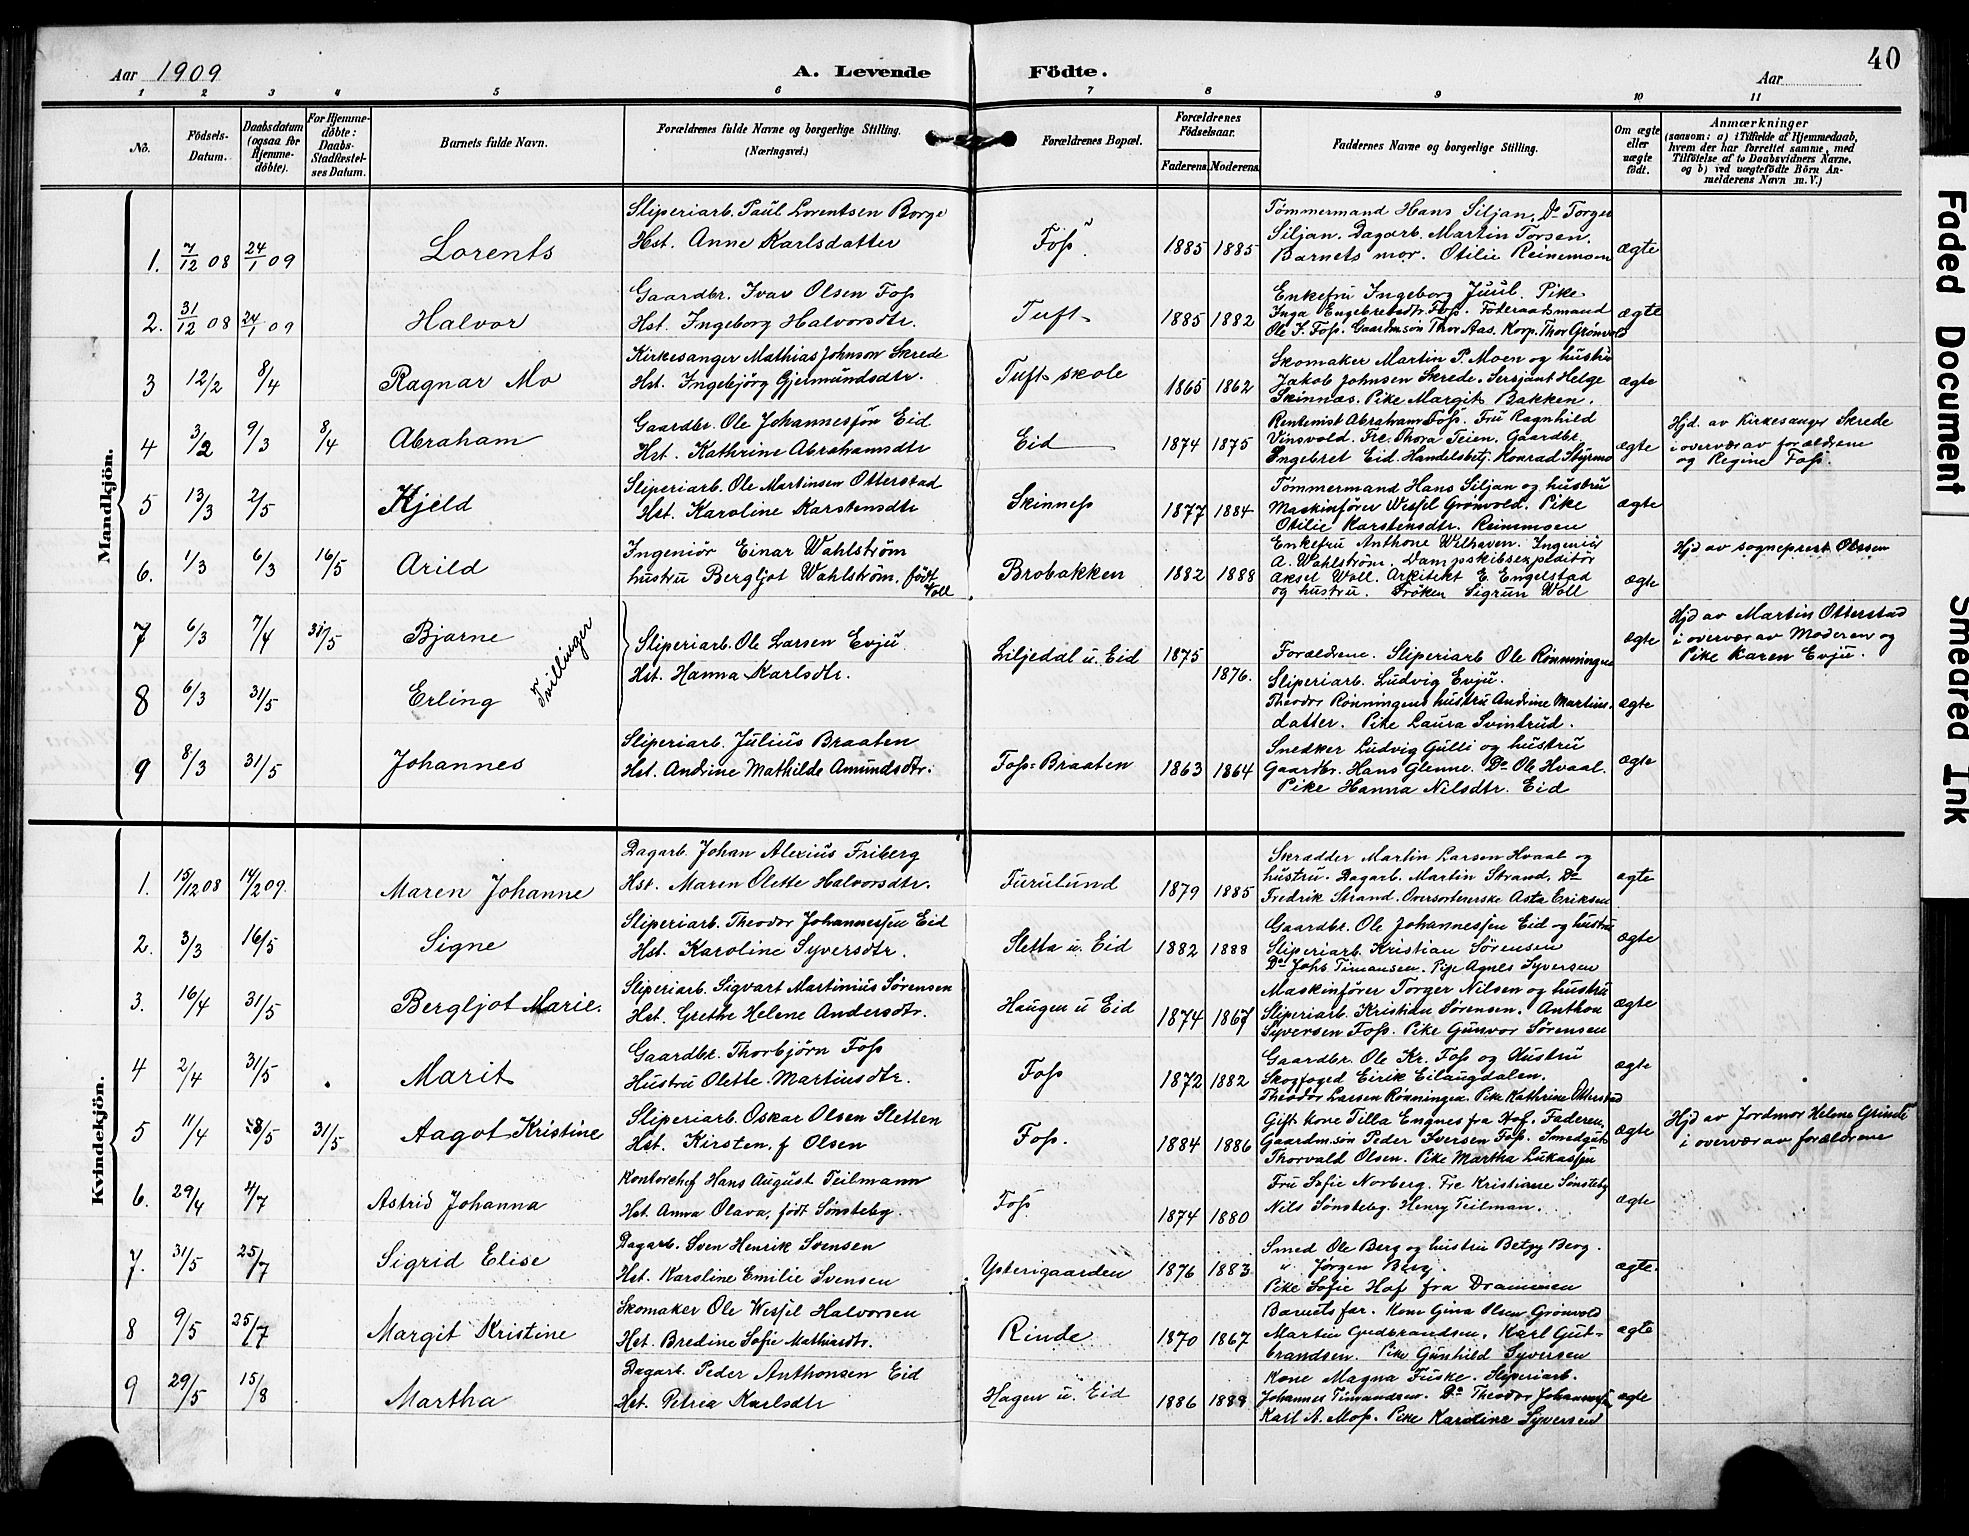 40
Aar 1909
A. Levende Födte.
Aar
1 2 3 4 5 6 7 8 9 10 11
No.
Födsels-Datum.
Daabsdatum (ogsaa for Hjemme-döbte).
For Hjemme-döbte: Daabs-Stadfæstel-ses Datum.
Barnets fulde Navn.
Forældrenes fulde Navne og borgerlige Stilling.
(Næringsvei.)
Forældrenes Bopæl.
Forældrenes Födselsaar.
Faderens Moderens
Faddernes Navne og borgerlige Stilling.
Om ægte eller uægte födt.
Anmærkninger
(saasom: a) i Tilfælde af Hjemmedaab,
hvem der har forrettet samme, med
Tilföielse af to Daabsvidners Navne,
og b) ved uægtefödte Börn An-
melderens Navn m. V.)
Mandkjön.
1. 7/12 08 24/1 09 Lorents
Sliperiarb. Paul Lorentsen Borge
Hst. Anne Karlsdatter
Foss. 1885 1885
Tømmermand Hans Siljan, Do Torger
Siljan. Dagarb. Martin Torsen.
Barnets mor. Otilie Reinemoen
ægte
2. 31/12 08 24/1 09 Halvor
Gaardbr. Ivar Olsen Foss
Hst. Ingeborg Halvorsdtr.
Tuft 1885 1882
Enkefru Ingeborg Juul. Pike
Inga Engebretsdtr. Foss. Føderaadsmand
Ole I. Foss. Gaardmsøn Thor Aas. Korp. Thor Grønvold
ægte
3 12/2 8/4 Ragnar Mo
Kirkesanger Mathias Johnson Skrede
Hst. Ingebjörg Gjermundsdtr.
Tuft skole 1865 1862
Skomaker Martin P. Moen og hustru
Jakob Johnsen Skrede. Sersjant Helge
Skinnæs. Pike Margit Bakken.
ægte
4 3/2 9/3 8/4 Abraham
Gaardbr. Ole Johannesjön Eid
Hst. Kathrine Abrahamsdtr
Eid 1874 1875
Rentenist Abraham Foss. Fru Ragnhild
Vinsvold. Frk. Thora Teien. Gaardbr.
Engebret Eid. Handelsbetj. Konrad Styrmo
ægte
Hjd. av Kirkesanger Skrede
i overvær av forældrene
og Regine Foss.
5 13/3 2/5 Kjeld
Sliperiarb. Ole Martinsen Otterstad
Hst. Karoline Karstensdtr
Skinness 1877 1884
Tømmermand Hans Siljan og hustru
Maskinfører Wessel Grønvold. Pike
Otilie Karstensdtr. Reinemoen
ægte
6. 1/3 6/3 16/5 Arild
Ingeniör Einar Wahlström
hustru Bergljot Wahlström, født
Woll
Brobakken 1882 1888
Enkefru Anthone Wilhaven. Ingeniör
A. Wahlström. Dampskibsexpeditör
Aksel Woll. Arkitekt E. Engelstad
og hustru. Frøken Sigrun Woll
ægte
Hjd av sogneprest Olssen
7 6/3 7/4 31/5 Bjarne
Tvillinger
Sliperiarb. Ole Larsen Evju.
Hst. Hanna Karlsdtr.
Liljedal u. Eid 1875 1876.
Forældrene. Sliperiarb Ole Rønningen
Sliperiarb. Ludvig Evju.
ægte
Hjd av Martin Otterstad
i overvær av Moderen og
Pike Karen Evju.
8 6/3 31/5 Erling
Theodor Rønningens hustru Andrine Martins-
datter. Pike Laura Svintrud.
ægte
9 8/3 31/5 Johannes
Sliperiarb. Julius Braaten
Hst. Andrine Mathilde Amundsdtr.
Foss-Braaten 1863 1864
Snedker Ludvig Gulli og hustru
Gaardbr. Hans Glenne. Do Ole Hvaal.
Pike Hanna Nilsdtr. Eid
ægte
Kvindekjön.
1. 15/12 08 14/2 09. Maren Johanne
Dagarb. Johan Alexius Friberg
Hst. Maren Olette Halvorsdtr.
Furulund 1879 1885
Skrædder Martin Larsen Hvaal og
hustru. Dagarb. Martin Strand. Do
Fredrik Strand. Oversortererske Asta Eriksen
ægte
2. 3/3 16/5 Signe
Sliperiarb. Theodor Johannessen Eid
Hst. Karoline Syversdtr.
Sletta u. Eid 1882 1888
Gaardbr. Ole Johannessen Eid og hustru
Sliperiarb. Kristian Sørensen
Do Johs Timansen. Pige Agnes Syversen
ægte
3. 16/4 31/5 Bergljot Marie.
Sliperiarb. Sigvart Martinius Sörensen
Hst. Grethe Helene Andersdtr.
Haugen u Eid 1874 1867
Maskinfører Torger Nilsen og hustru
Sliperiarb. Kristian Sørensen. Anthon
Syversen Foss. Pike Gunvor Sörensen
ægte
4 2/4 31/5 Marit
Gaardbr. Thorbjörn Foss
Hustru Olette Martinsdtr.
Foss 1872 1882
Gaardbr. Ole Kr. Foss og Hustru
Skogfoged Eirik Eilaugdalen.
Theodor Larsen Rönningen. Pike Kathrine Otterstad
ægte
5 11/4 28/5 31/5 Aagot Kristine
Sliperiarb. Oskar Olsen Sletten
Hst. Kirsten, f Olsen
Foss. 1884 1886
Gift kone Tilla Engnes fra Hof. Faderen,
Gaardm.søn Peder Iversen Foss. Smedgut
Thorvald Olsen. Pike Martha Lukassen
ægte
Hjd av Jordmor Helene Grinde
i overvær av forældrene
6. 29/4 4/7 Astrid Johanna
Kontorchef Hans August Teilmann
Hst. Anna Olava, født Sönsteby.
Foss 1874 1880
Fru Sofie Norberg. Frk Kristiane Sönsteby
Nils Sönsteby. Henry Teilman.
ægte
7. 31/5 25/7 Sigrid Elise
Dagarb. Sven Henrik Svensen
Hst. Karoline Emilie Svensen
Ysterigaarden 1876 1883
Smed Ole Berg og hustru Betzy Berg.
u Jørgen Berg.
Pike Sofie Hof fra Drammen
ægte.
8 9/5 25/7 Margit Kristine
Skomaker Ole Wessel Halvorsen
Hst. Bredine Sofie Mathisdtr.
Rinde 1870 1867
Barnets far. Kone Gina Olsen Grønvold
Martin Gudbrandsen, Karl Gut-
brandsen. Pike Gunhild Syversen
ægte
9 29/5 15/8 Martha
Dagarb. Peder Anthonsen Eid
Hst. Petrea Karlsdtr
Hagen u. Eid 1886 1888
Kone Magna Fuske. Sliperiarb.
Johannes Timandsen. Do Theodor Johannessen
Karl A. Moss. Pike Karoline Syversen
ægte
Faded Document
Smeared Ink